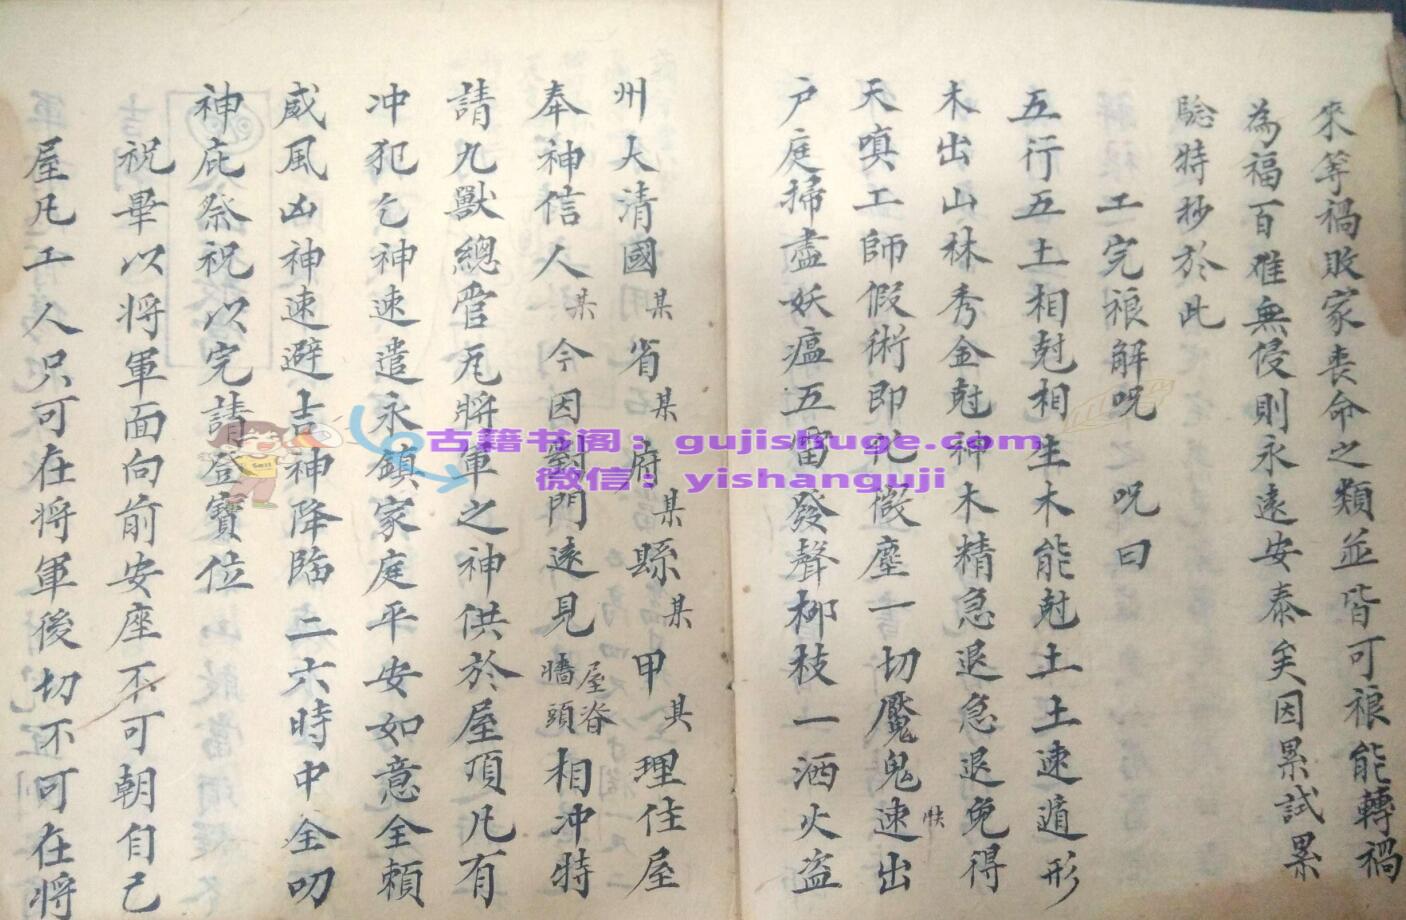 來等禍敗家喪命之類並皆可禳能轉禍
為福百難無侵則永遠安泰矣因累試累
驗特抄於此
工完禳解咒之咒曰
五行五土相尅相生木能尅土土速遁形
木出山林秀金尅神木精急退急退免得
天嗔工師假術即化微塵一切魘鬼速出
快
戶庭掃盡妖瘟五雷發聲柳枝一洒火盜
州大清國某省某府某縣某甲某理住屋
奉神信人某今因對門遠見屋脊牆頭相冲特
請九獸總管瓦將軍之神供於屋頂凡有
冲犯乞神速遣永鎮家庭平安如意全賴
威風凶神速避吉神降臨二六時中全叨
神庇祭祝以完請登寶位
祝畢以將軍面向前安座不可朝自己
屋凡工人只可在將軍後切不可在將
古籍书阁：gujishuge.com
微信：yishanguji